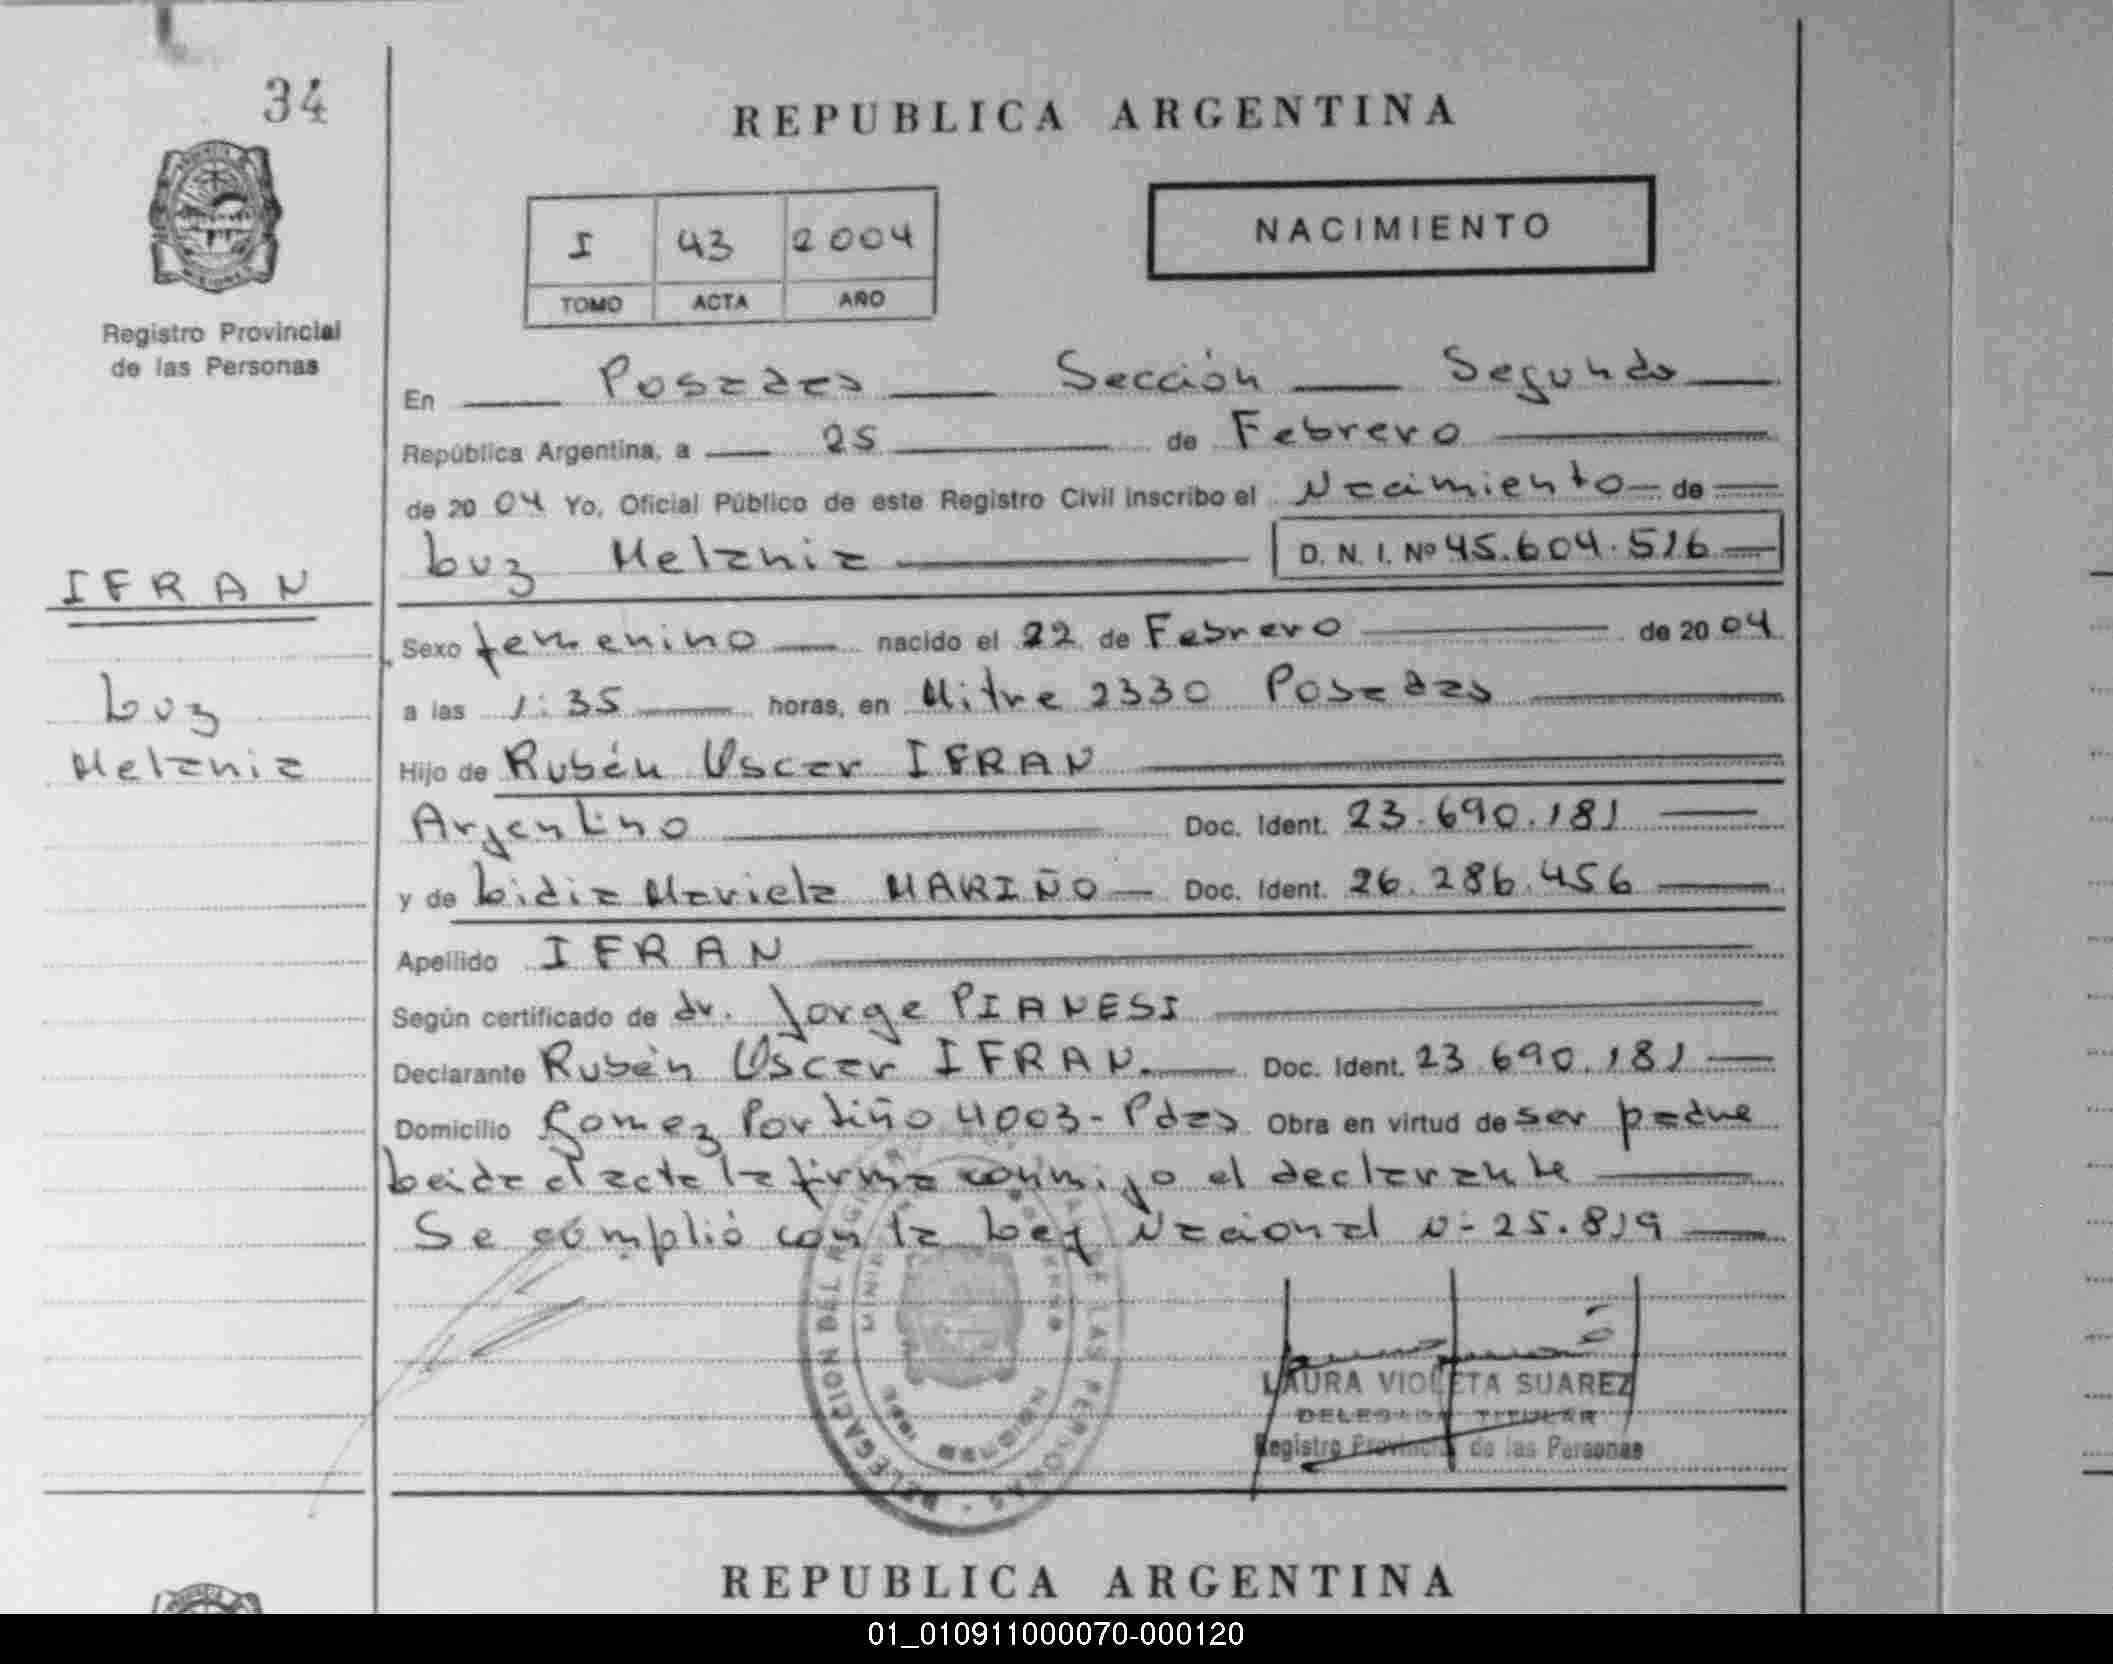 34
REPUBLICA ARGENTINA
I 43 2004
TOMO ACTA AÑO
NACIMIENTO
Registro Provincial
de las Personas
En Posadas Sección Segunda
República Argentina, a 25 de Febrero
de 2004 Yo, Oficial Público de este Registro Civil inscribo el Nacimiento de
Luz Melania D. N. I. Nº 45.604.516
IFRAN
Luz
Melania
Sexo femenino nacido el 22 de Febrero de 2004
a las 1:35 horas, en Mitre 2330 Posadas
Hijo de Rubén Oscar IFRAN
Argentino Doc. Ident. 23.690.181
y de Lidia Mariela MARIÑO Doc. Ident. 26.286.456
Apellido IFRAN
Según certificado de dr. Jorge PIANESI
Declarante Rubén Oscar IFRAN. Doc. Ident. 23.690.181
Domicilio Gomez Portiño 4003- Pdas Obra en virtud de ser padre
Leida el acta la firma conmigo el declarante
Se cómplió con la Ley Nacional N- 25.819
DELEGACION DEL DE LAS PERSONAS
LAURA VIOLETA SUAREZ
DELEGADA TITULAR
Registro Provincial de las Personas
REPUBLICA ARGENTINA
01_010911000070-000120